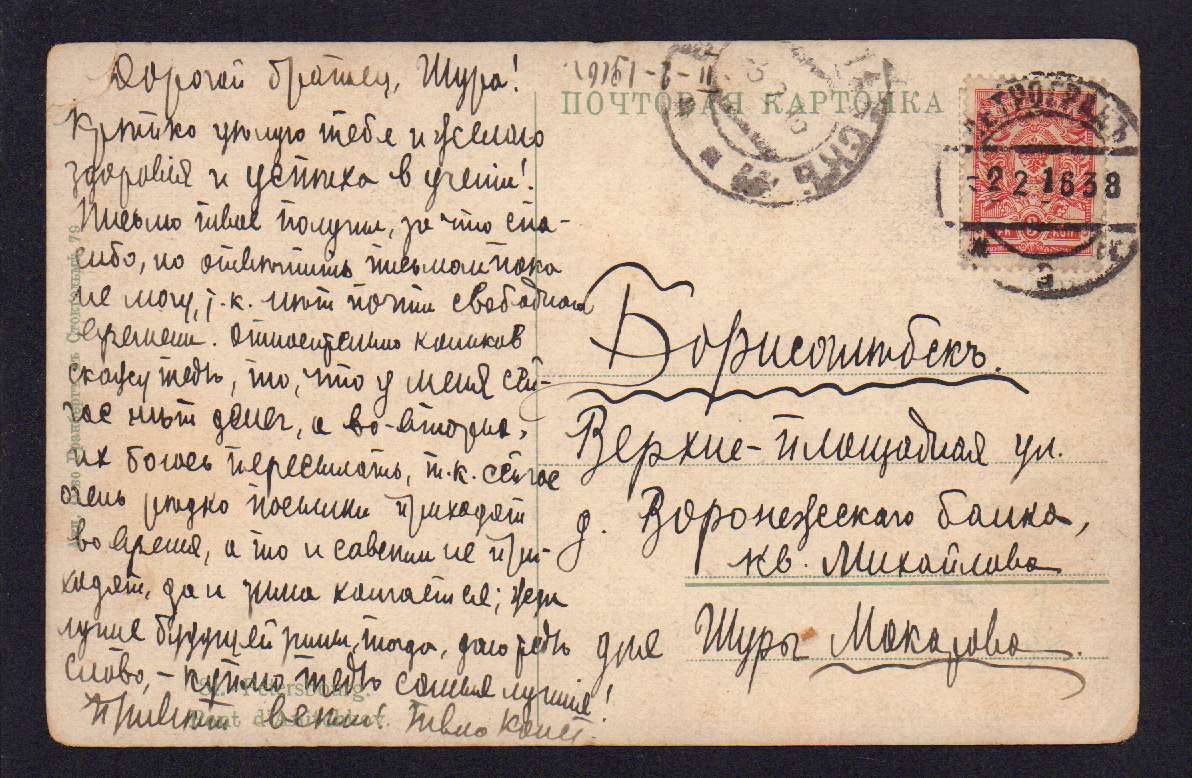 Дорогой братец, Шура!
Крѣпко цѣлую тебя и желаю
здоровья и успѣха в ученіи!
Письмо твое получил, за что спа-
сибо, но отвѣтить письмом пока
не могу, т.к. нѣт почти свободнаго
времени. Относительно коньков
скажу тебѣ, то, что у меня сей-
час нѣт денег, а во-вторых,
их боюсь пересылать, т.к. сейчас
очень рѣдко посылки приходят
во время, а то и совсѣм не при-
ходят, да и зима кончается; жди
лучше будущей зимы, тогда, даю тебѣ
слово, – куплю тебѣ самые лучшіе!
Привѣт всѣм! Твой
11-2-1916
ПОЧТОВАЯ КАРТОЧКА
ПЕТРОГРАДЪ
2 2 16 38
Борисоглѣбскъ.
Верхне-площадная ул.
д. Воронежскаго банка,
кв. Михайлова
для Шуры Макарова.
St. Petersbourg.
Стокгольмъ 79